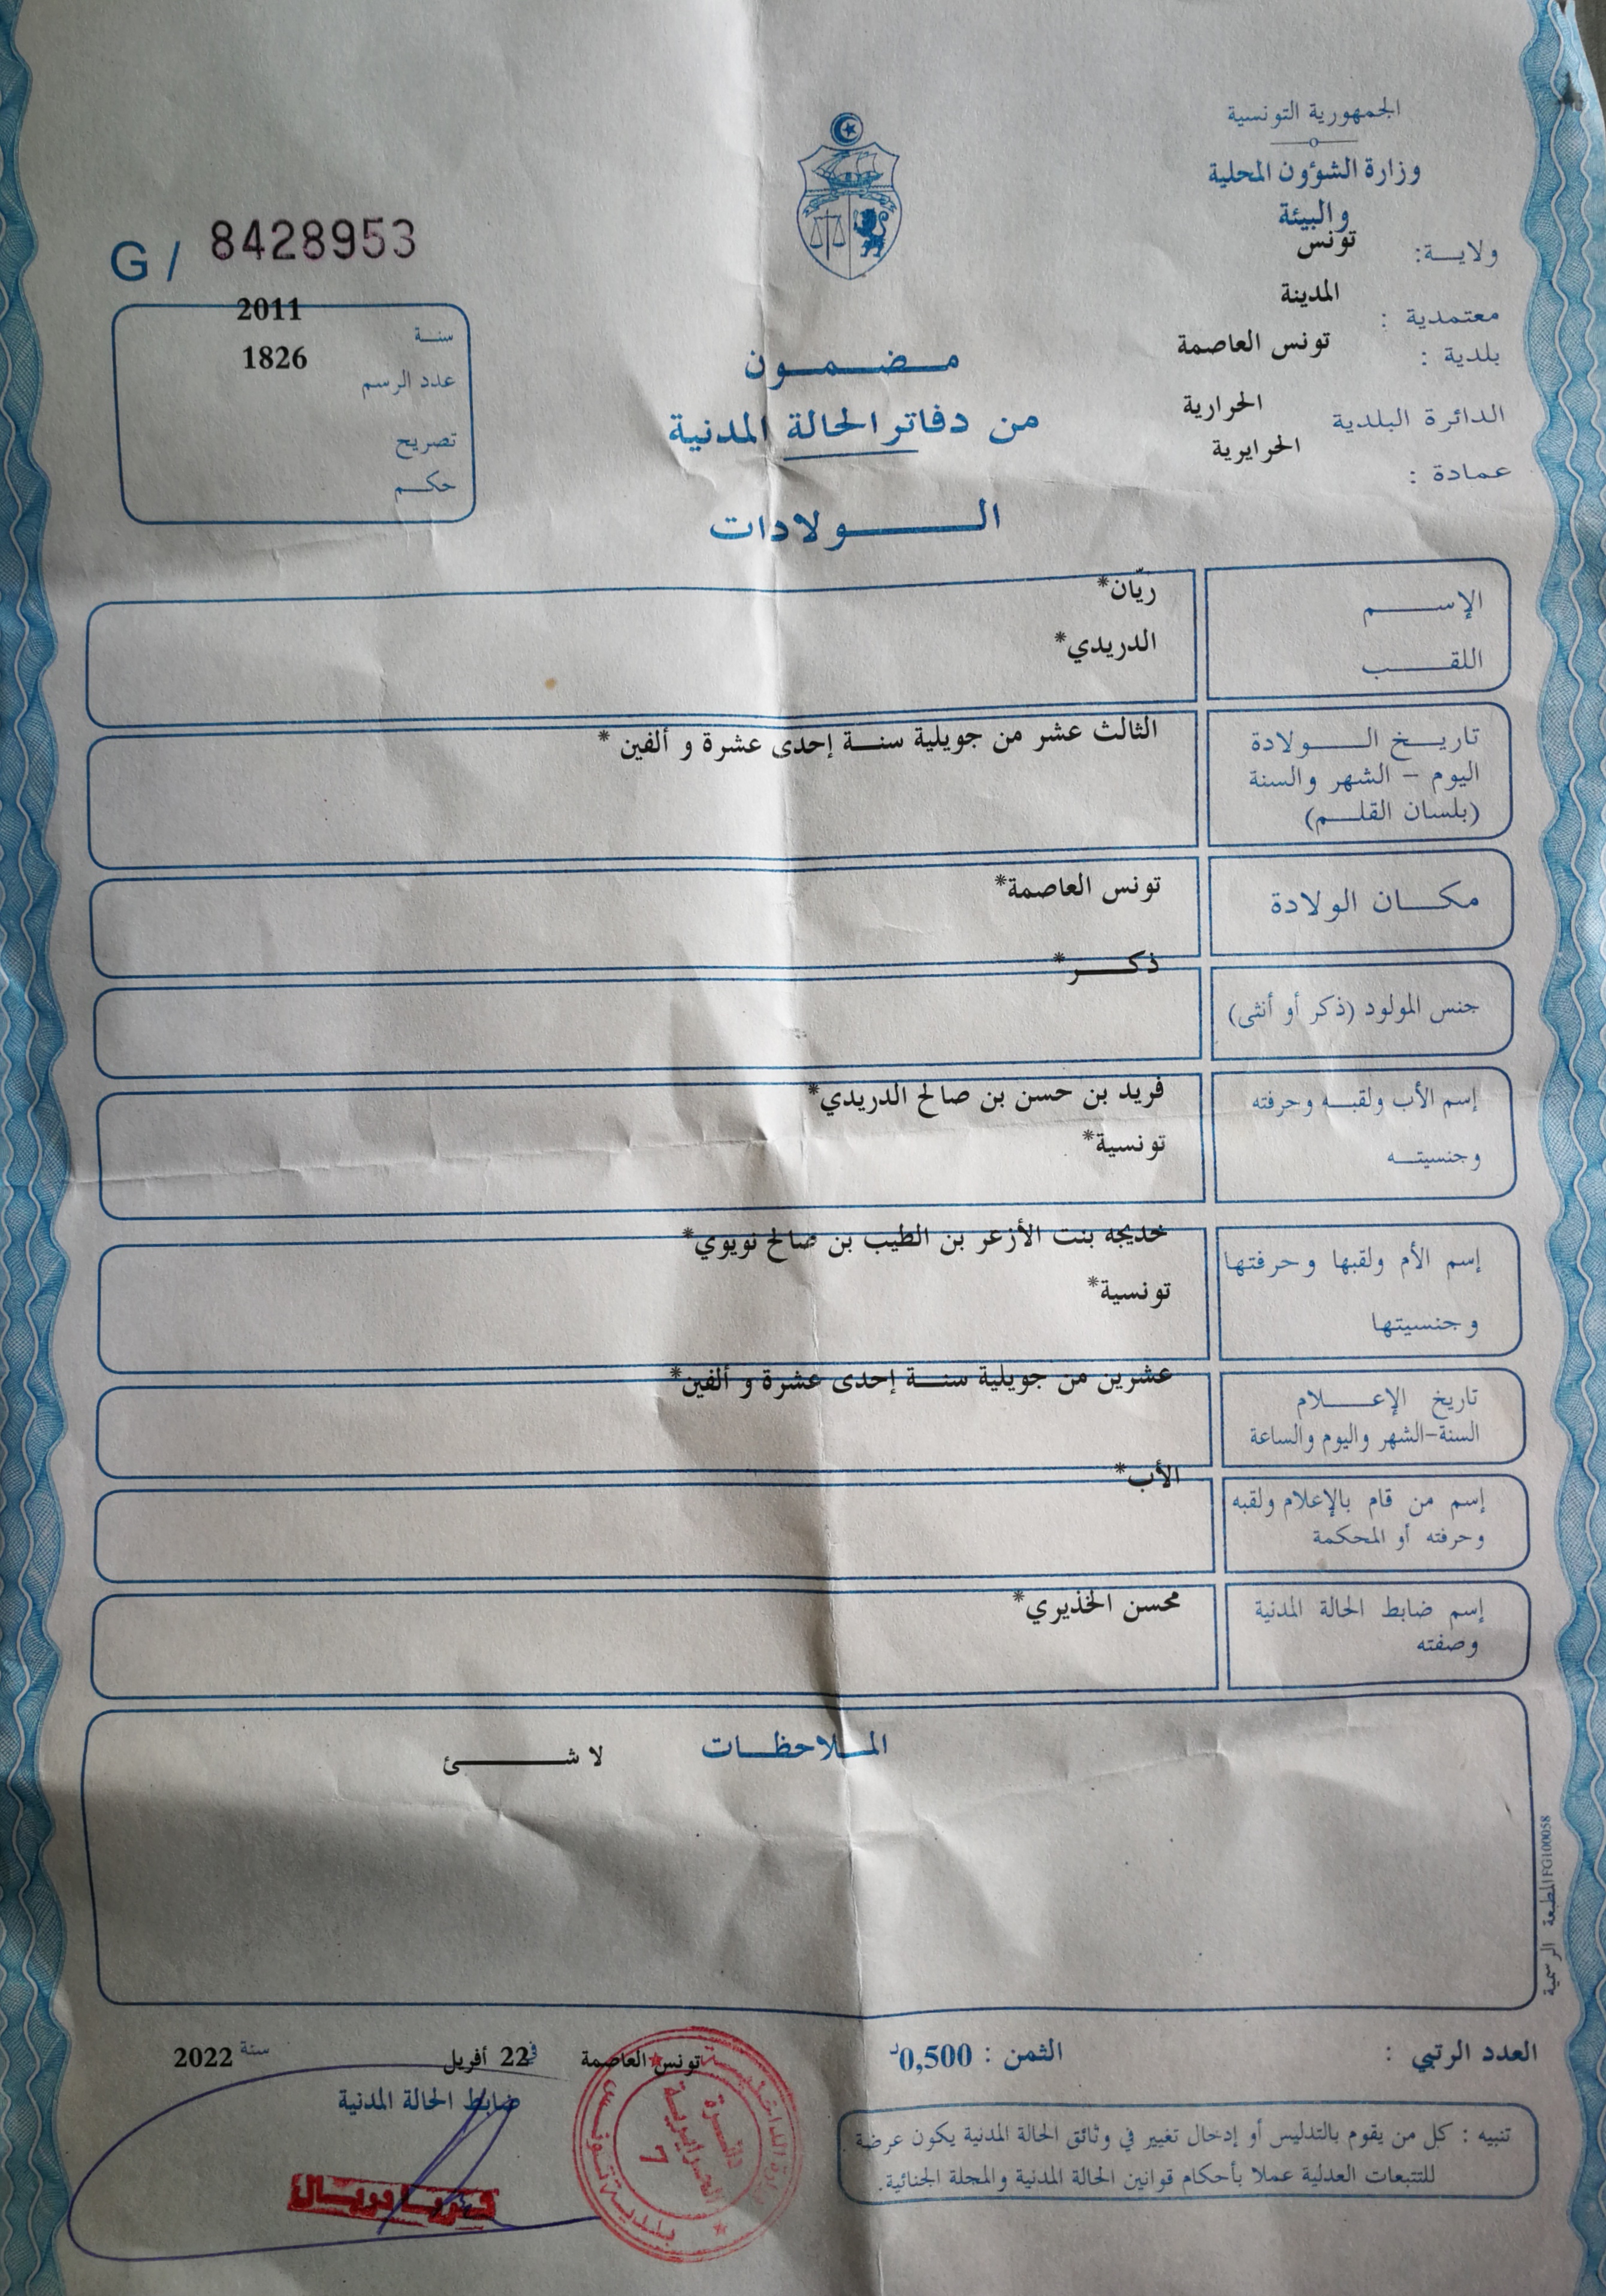 الجمهورية التونسية
وزارة الشؤون المحلية
والبيئة
ولايــة: تونس
معتمدية : المدينة
بلدية : تونس العاصمة
الدائرة البلدية الحرارية
عمادة : الحرايرية
G / 8428953
سنة 2011
عدد الرسم 1826
تصريح
حكم
مضمون
من دفاتر الحالة المدنية
الولادات
الإسم ريّان*
اللقب الدريدي*
تاريخ الولادة الثالث عشر من جويلية سنة إحدى عشرة و ألفين *
اليوم - الشهر والسنة
(بلسان القلم)
مكان الولادة تونس العاصمة*
جنس المولود (ذكر أو أنثى) ذكر*
إسم الأب ولقبه وحرفته فريد بن حسن بن صالح الدريدي*
وجنسيته تونسية*
إسم الأم ولقبها وحرفتها خديجه بنت الأزعر بن الطيب بن صالح نويوي*
وجنسيتها تونسية*
تاريخ الإعلام عشرين من جويلية سنة إحدى عشرة و ألفين*
السنة-الشهر واليوم والساعة
إسم من قام بالإعلام ولقبه الأب*
وحرفته أو المحكمة
إسم ضابط الحالة المدنية محسن الخذيري*
وصفته
الملاحظات
لا شئ
المطبعة الرسمية FG100058
العدد الرتبي :
الثمن : 0,500د
تونس العاصمة في 22 أفريل سنة 2022
ضابط الحالة المدنية
تنبيه : كل من يقوم بالتدليس أو إدخال تغيير في وثائق الحالة المدنية يكون عرضة
للتتبعات العدلية عملا بأحكام قوانين الحالة المدنية والمجلة الجنائية.
بلدية تونس
دائرة
الحرايرية
7